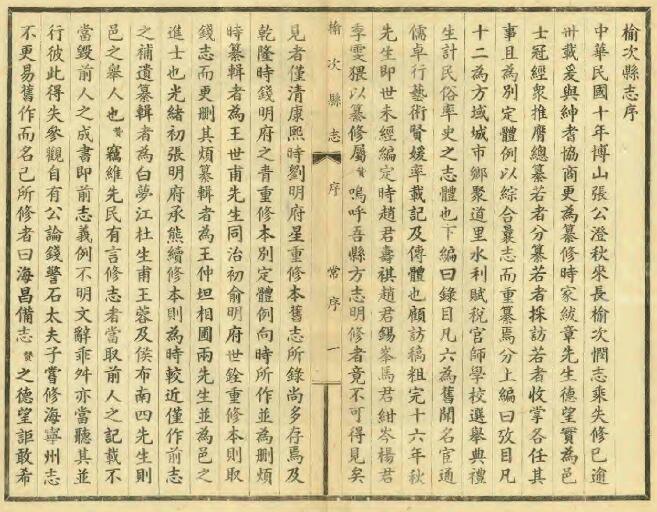 榆次縣志序
中華民國十年博山張公澄秋來長榆次憫志乘失修已逾
卅載爰與紳耆協商更為纂修時家紱章先生德望實為邑
士冠經衆推膺總纂若者分纂若者採訪若者收掌各任其
事且為別定體例以綜合曩志而重纂焉分上編曰攷目凡
十二為方域城市鄉聚道里水利賦稅官師學校選舉典禮
生計民俗率史之志體也下編曰錄目凡六為舊聞名宦通
儒卓行藝術賢媛率載記及傳體也顧訪稿粗完十六年秋
先生即世未經編定時趙君壽祺趙君錫峯馬君紺岑楊君
季雯猥以纂修屬贊嗚呼吾縣方志明修者竟不可得見矣
榆次縣志
序
常序
一
見者僅清康熙時劉明府星重修本舊志所錄尚多存焉及
乾隆時錢明府之青重修本別定體例向時所作並為刪煩
時纂輯者為王世甫先生同治初俞明府世銓重修本則取
錢志而更刪其煩纂輯者為王仲坦相國兩先生並為邑之
進士也光緒初張明府承熊續修本則為時較近僅作前志
之補遺纂輯者為白夢江杜生甫王蓉及侯布南四先生則
邑之舉人也贊竊維先民有言修志者當取前人之記載不
當毀前人之成書即前志義例不明文辭乖舛亦當聽其並
行彼此得失參觀自有公論錢警石太夫子嘗修海寧州志
不更易舊作而名己所修者曰海昌備志贊之德望詎敢希